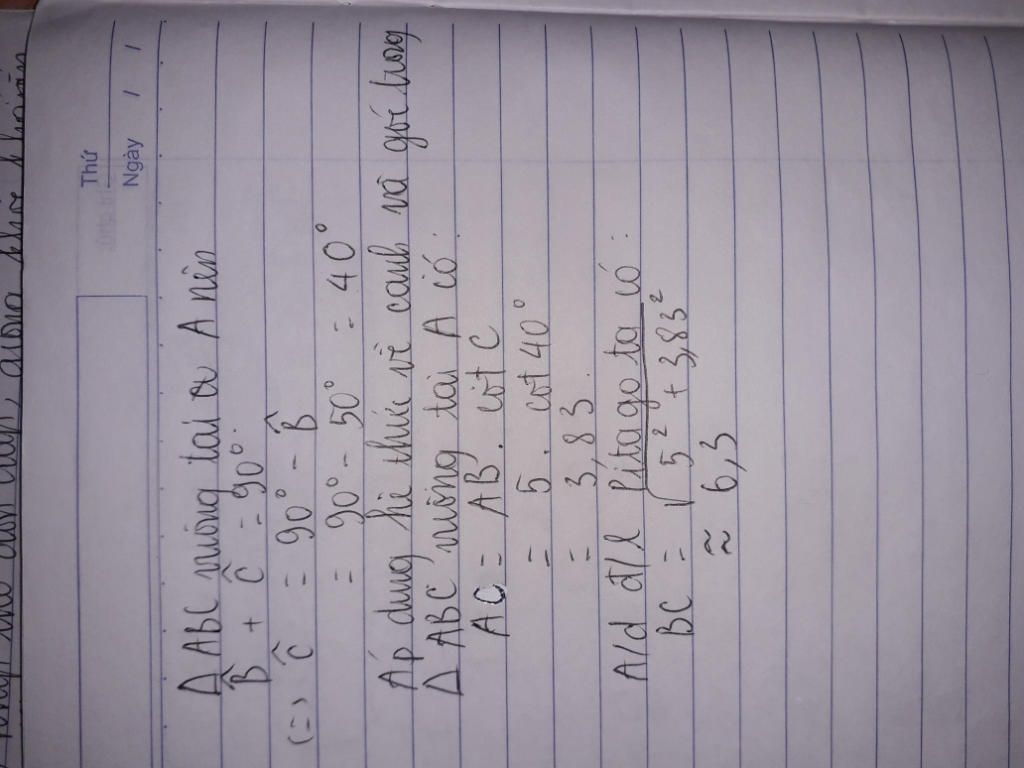 Thứ
Ngày / /
Δ ABC vuông tại a A nên
B̂ + Ĉ = 90°.
(=) Ĉ = 90° - B̂
= 90° - 50° = 40°
Áp dụng hệ thức về cạnh và góc trong
Δ ABC vuông tại A có:
AC = AB. cot C
= 5. cot 40°
= 3,83.
A/d đ/l Pitago ta có:
BC = √5² + 3,83²
≈ 6,3